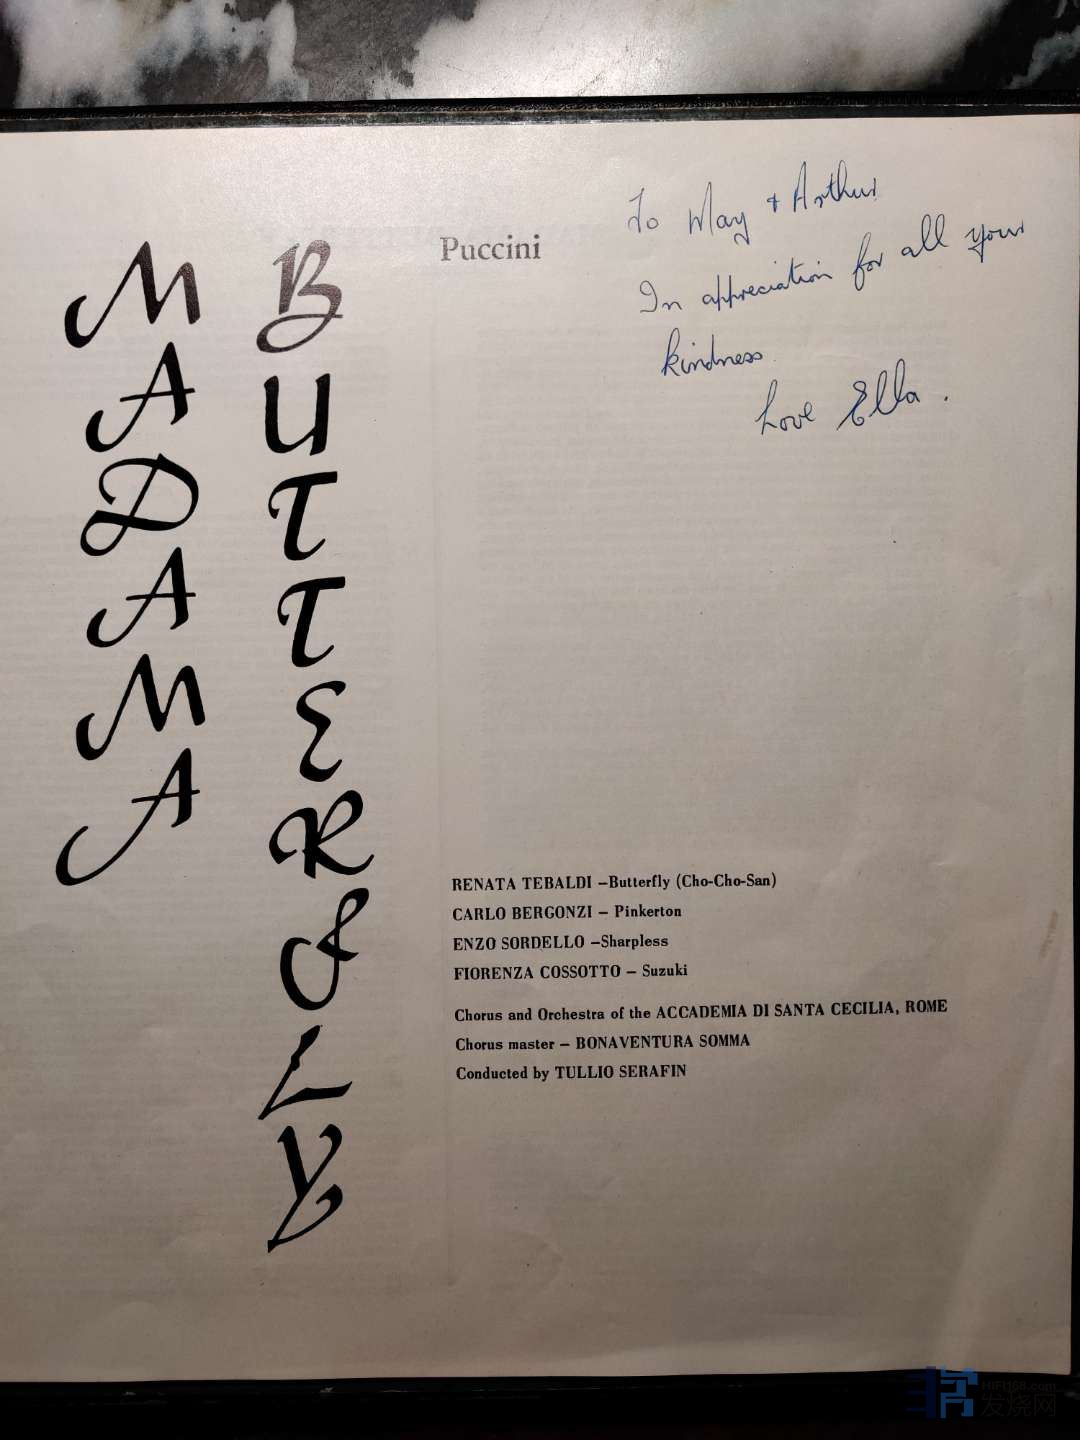 MADAMA
BUTTERFLY
Puccini
To May & Arthur
In appreciation for all your
kindness.
Love Ella.
RENATA TEBALDI –Butterfly (Cho-Cho-San)
CARLO BERGONZI – Pinkerton
ENZO SORDELLO –Sharpless
FIORENZA COSSOTTO – Suzuki
Chorus and Orchestra of the ACCADEMIA DI SANTA CECILIA, ROME
Chorus master – BONAVENTURA SOMMA
Conducted by TULLIO SERAFIN
HIFI168.com
发烧网